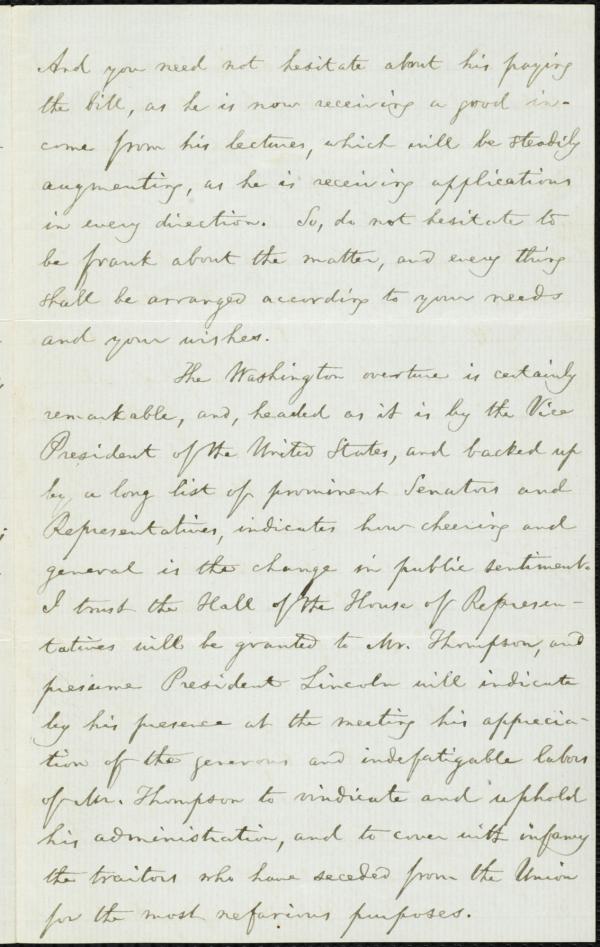 And you need not hesitate about his paying
the bill, as he is now receiving a good in-
come from his lectures, which will be steadily
augmenting, as he is receiving applications
in every direction. So, do not hesitate to
be frank about the matter, and every thing
shall be arranged according to your needs
and your wishes.
The Washington overture is certainly
remarkable, and, headed as it is by the Vice
President of the United States, and backed up
by a long list of prominent Senators and
Representatives, indicates how cheering and
general is the change in public sentiment.
I trust the Hall of the House of Represen-
tatives will be granted to Mr. Thompson, and
presume President Lincoln will indicate
by his presence at the meeting his apprecia-
tion of the generous and indefatigable labors
of Mr. Thompson to vindicate and uphold
his administration, and to cover with infamy
the traitors who have seceded from the Union
for the most nefarious purposes.